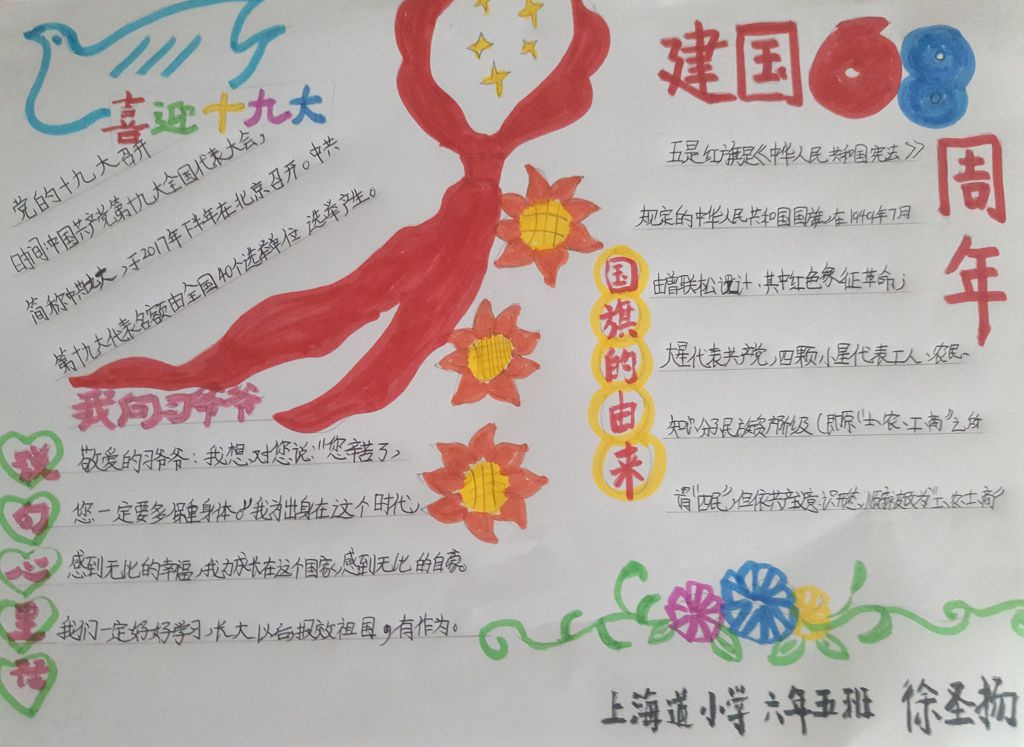 喜迎十九大
党的十九大召开
时间:中国共产党第十九大全国代表大会,
简称中共 ,于2017年下半年在北京召开。中共
第十九大代表名额由全国40个选举单位选举产生。
我向习爷爷
说句心里话
敬爱的习爷爷:我想对您说:"您辛苦了,
您一定要多保重身体。"我为出身在这个时代,
感到无比的幸福,我为成长在这个国家,感到无比的自豪。
我们一定好好学习,长大以后报效祖国,有作为。
建国68
周年
国旗的由来
五星红旗是《中华人民共和国宪法》
规定的中华人民共和国国旗,在1949年7月
由曾联松设计,其中红色象征革命,
大星代表共产党,四颗小星代表工人、农民、
知识分子民族资产阶级(即原"士、农、工、商"之
谓"四民",但依共产党意识形态,
上海道小学 六年五班 徐圣扬